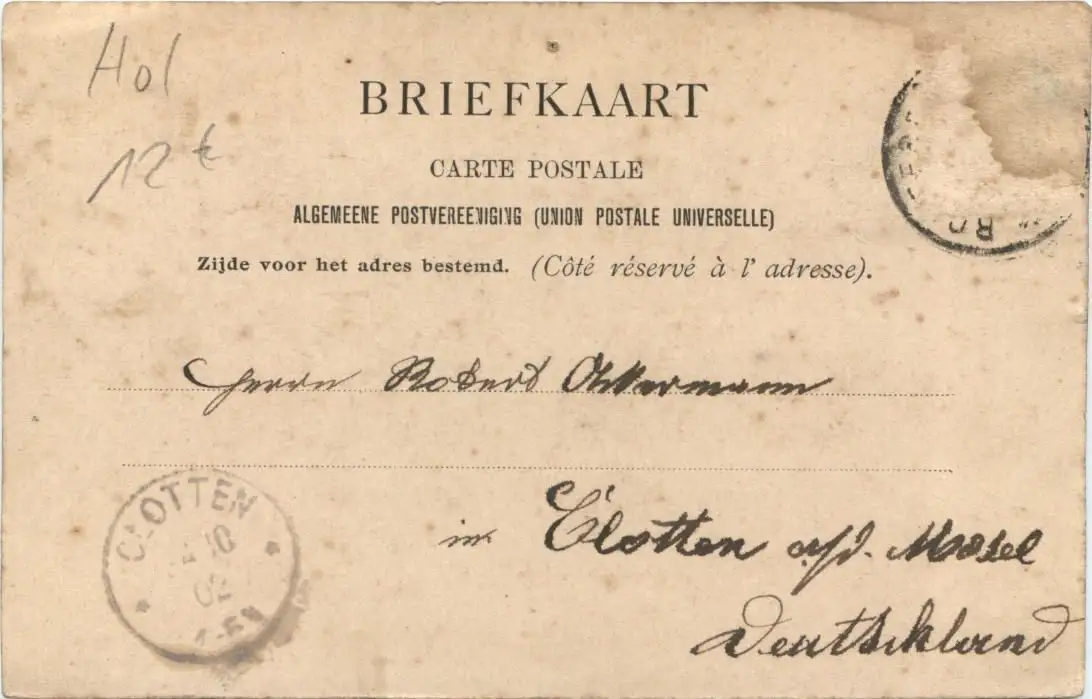 Hol
12 €
BRIEFKAART
CARTE POSTALE
ALGEMEENE POSTVEREENIGING (UNION POSTALE UNIVERSELLE)
Zijde voor het adres bestemd. (Côté réservé à l' adresse).
Herrn Robert Ackermann
in Clotten a/d. Mosel
Deutschland
CLOTTEN
10
02